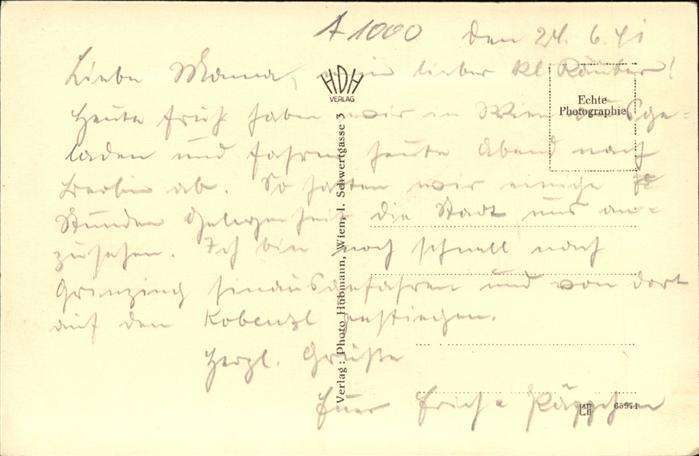 A 1000 den 24. 6. 41
Liebe Mama, mein lieber kl. Räuber!
Heute früh haben wir in Wien ausge-
laden und fahren heute Abend nach
Berlin ab. So hatten wir einige
Stunden Gelegenheit die Stadt uns an-
zusehen. Ich bin noch schnell nach
Grinzing hinausgefahren und von dort
auf den Kobenzl gestiegen.
Herzl. Grüße
Euer Erich
HDH
VERLAG
Echte
Photographie
Verlag: Photo Hubmann, Wien, I. Schwertgasse 3